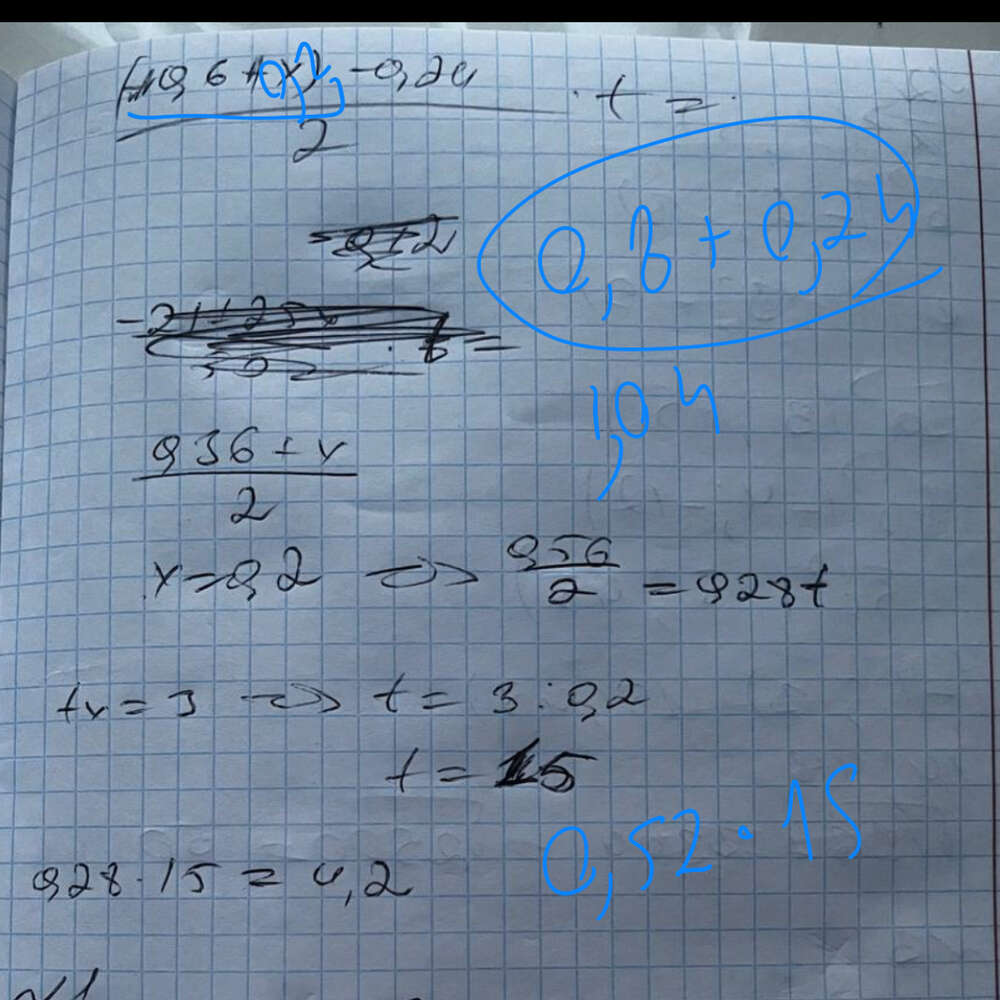 (0,6+x) -0,24
0,2
2
· t =
0,8+0,24
1,04
0,36+x
2
x=0,2 => 0,56
2
= 0,28t
tx = 3 => t = 3:0,2
t = 15
0,52·15
0,28·15 = 4,2